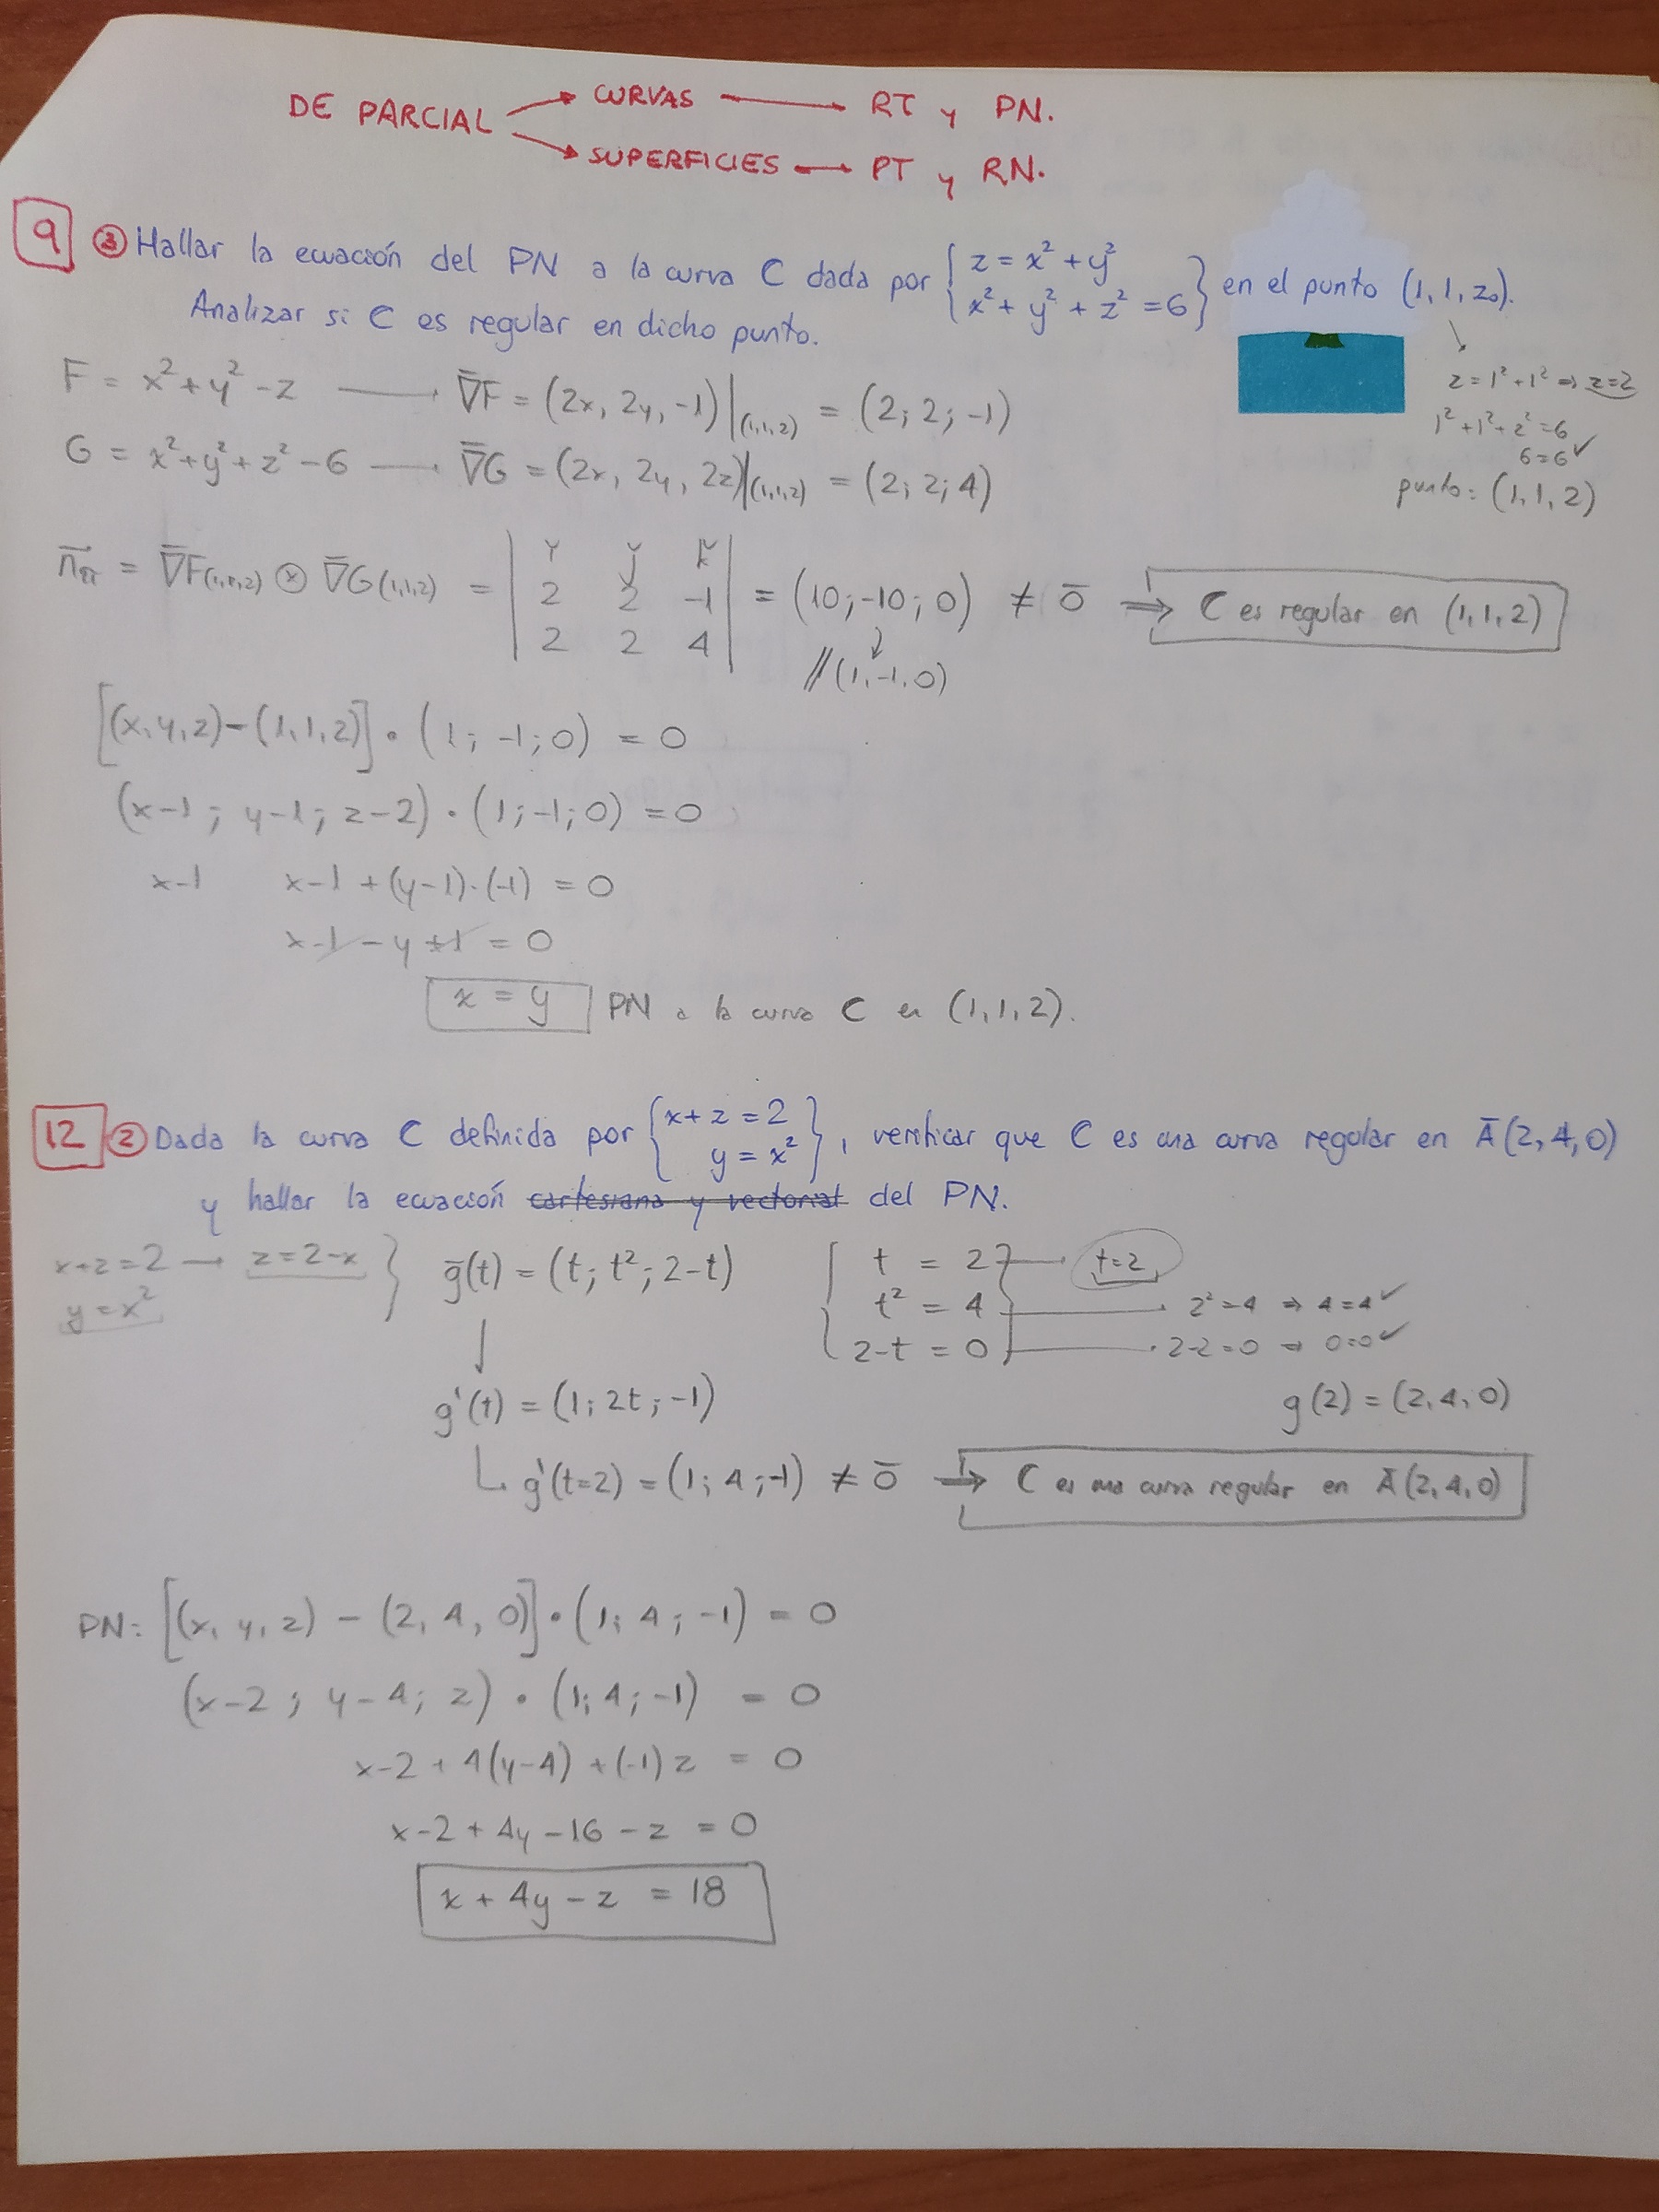 DE PARCIAL → CURVAS → RT y PN.
→ SUPERFICIES → PT y RN.
9 ③ Hallar la ecuación del PN a la curva C dada por { z = x² + y²
x² + y² + z² = 6 } en el punto (1, 1, z₀).
Analizar si C es regular en dicho punto.
z = 1² + 1² ⇒ z=2
1² + 1² + z² = 6
6=6 ✓
punto: (1, 1, 2)
F = x² + y² - z → ∇̄F = (2x, 2y, -1)|(1,1,2) = (2; 2; -1)
G = x² + y² + z² - 6 → ∇̄G = (2x, 2y, 2z)|(1,1,2) = (2; 2; 4)
n̄π = ∇̄F(1,1,2) ⊗ ∇̄G(1,1,2) = | ǐ ǰ ǩ |
| 2 2 -1 |
| 2 2 4 | = (10; -10; 0) ≠ 0̄ ⇒ C es regular en (1, 1, 2)
// (1, -1, 0)
[(x, y, z) - (1, 1, 2)] • (1; -1; 0) = 0
(x-1; y-1; z-2) • (1; -1; 0) = 0
x-1 x-1 + (y-1)·(-1) = 0
x-1 - y +1 = 0
x = y PN a la curva C en (1, 1, 2).
12 ② Dada la curva C definida por { x + z = 2
y = x² }, verificar que C es una curva regular en Ā (2, 4, 0)
y hallar la ecuación cartesiana y vectorial del PN.
x+z=2 → z=2-x
y = x² } ḡ(t) = (t; t²; 2-t)
t = 2 → t=2
t² = 4 → 2²=4 ⇒ 4=4 ✓
2-t = 0 → 2-2=0 ⇒ 0=0 ✓
g'(t) = (1; 2t; -1)
g(2) = (2, 4, 0)
g'(t=2) = (1; 4; -1) ≠ 0̄ ⇒ C es una curva regular en Ā (2, 4, 0)
PN: [(x, y, z) - (2, 4, 0)] • (1; 4; -1) = 0
(x-2; y-4; z) • (1; 4; -1) = 0
x-2 + 4(y-4) + (-1) z = 0
x-2 + 4y - 16 - z = 0
x + 4y - z = 18